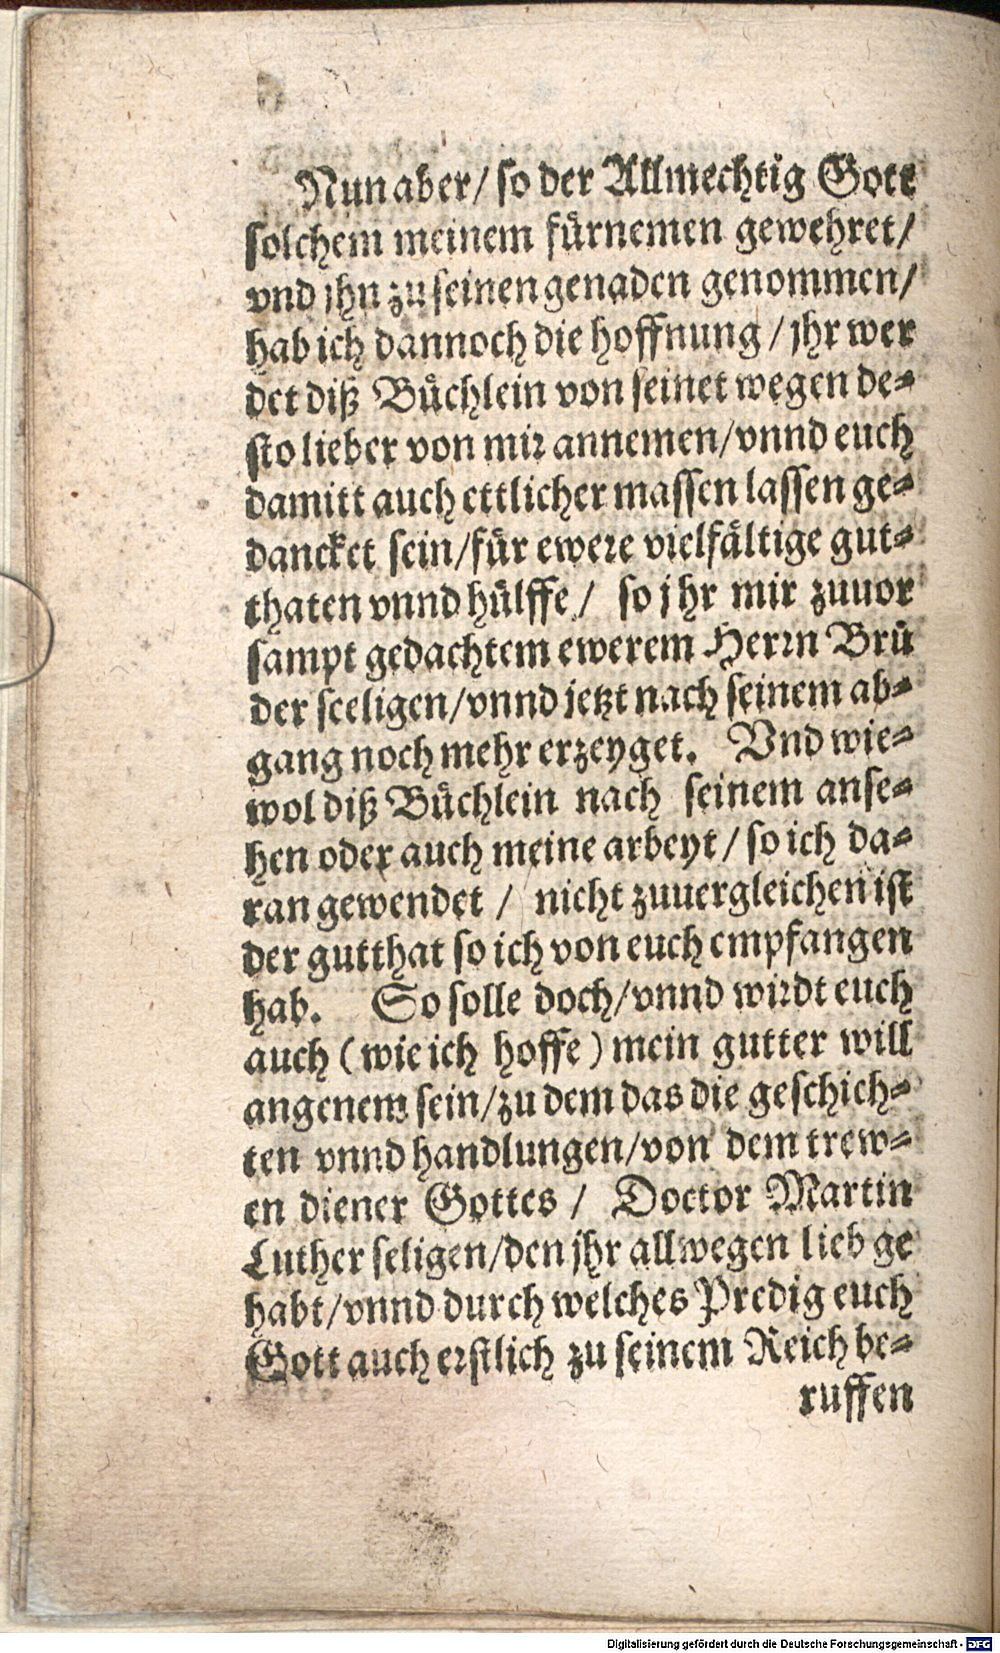 Nun aber/ so der Allmechtig Gott
solchem meinem fürnemen gewehret/
vnd jhn zu seinen genaden genommen/
hab ich dannoch die hoffnung / jhr wer
det diß Bůchlein von seinet wegen de⸗
sto lieber von mir annemen/vnnd euch
damitt auch ettlicher massen lassen ge⸗
dancket sein/für ewere vielfältige gut⸗
thaten vnnd hülffe/ so jhr mir zuuor
sampt gedachtem ewerem Herrn Brů
der seeligen/vnnd jetzt nach seinem ab⸗
gang noch mehr erzeyget. Vnd wie⸗
wol diß Bůchlein nach seinem anse⸗
hen oder auch meine arbeyt/ so ich da⸗
ran gewendet / nicht zuuergleichen ist
der gutthat so ich von euch empfangen
hab. So solle doch/vnnd wirdt euch
auch (wie ich hoffe) mein gutter will
angenem sein/zu dem das die geschich⸗
ten vnnd handlungen/von dem trew⸗
en diener Gottes / Doctor Martin
Luther seligen/den jhr allwegen lieb ge
habt/vnnd durch welches Predig euch
Gott auch erstlich zu seinem Reich be⸗
ruffen
Digitalisierung gefördert durch die Deutsche Forschungsgemeinschaft - DFG